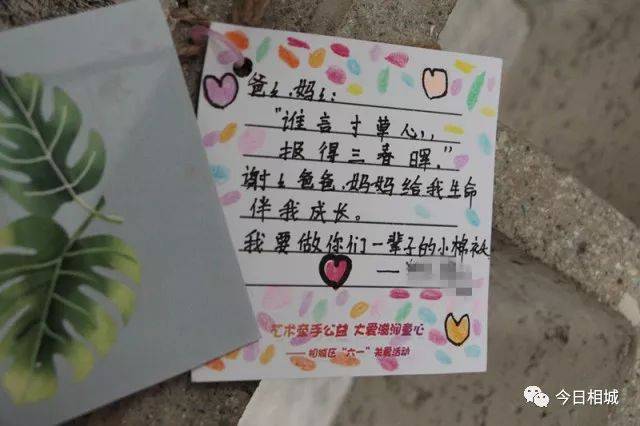 爸々、妈々：
“谁言寸草心，
报得三春晖。”
谢々爸爸、妈妈给我生命
伴我成长。
我要做你们一辈子的小棉袄
—
艺术牵手公益 大爱滋润童心
——相城区“六一”关爱活动
今日相城